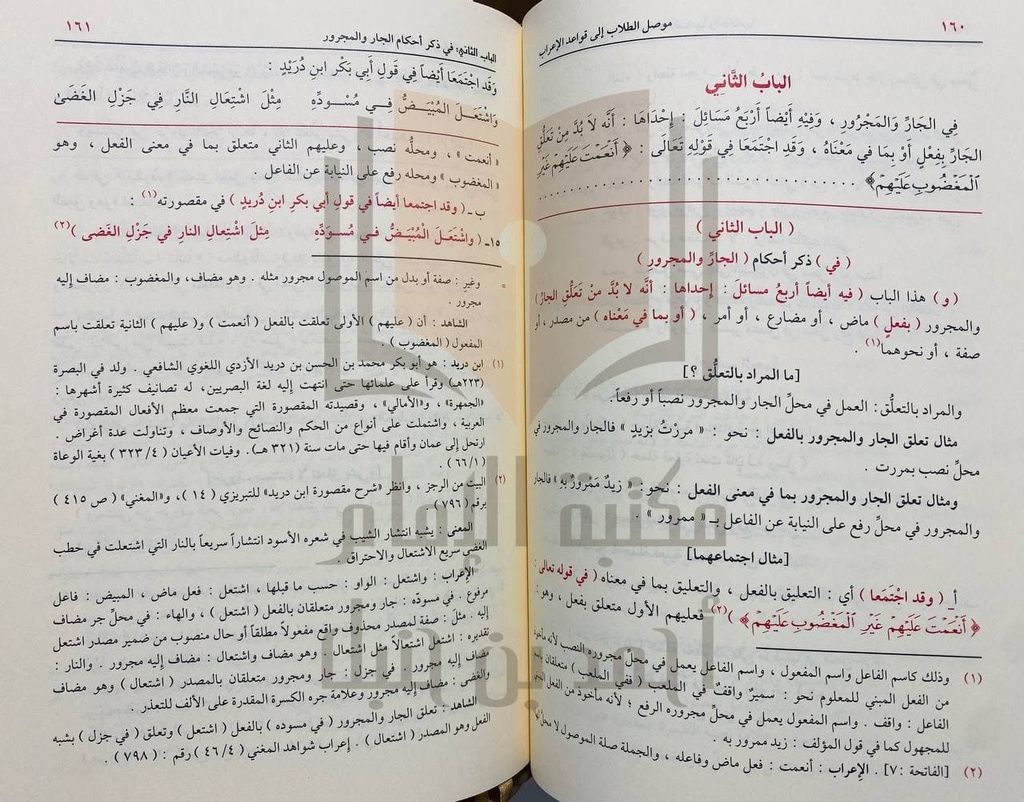 ١٦٠
موصل الطلاب إلى قواعد الإعراب
البابُ الثَّانِي
فِي الجَارِّ وَالمَجْرُورِ ، وَفِيْهِ أَيْضاً أَرْبَعُ مَسَائِلَ : إِحْدَاهَا : أَنَّه لاَ بُدَّ مِنْ تَعَلُّقِ
الجَارِّ بِفِعْلٍ أَوْ بِمَا فِي مَعْنَاهُ ، وَقَدِ اجْتَمَعَا فِي قَوْلِهِ تَعَالَى : ﴿ أَنْعَمْتَ عَلَيْهِمْ غَيْرِ
الْمَغْضُوبِ عَلَيْهِمْ ﴾ ........................................
( الباب الثاني )
( في ) ذكر أحكام ( الجارِّ والمجرورِ )
( و ) هذا الباب ( فيه أيضاً أربعُ مسائلَ : إحداها : أنَّه لا بُدَّ منْ تَعَلُّقِ الجارِّ )
والمجرور ( بفعلٍ ) ماض ، أو مضارع ، أو أمر ، ( أو بما في مَعْناه ) من مصدر ، أو
صفة ، أو نحوهما(١) .
[ما المراد بالتعلُّق ؟]
والمراد بالتعلُّق: العمل في محلِّ الجار والمجرور نصباً أو رفعاً.
مثال تعلق الجار والمجرور بالفعل : نحو : « مررْتُ بزيدٍ » فالجار والمجرور في
محلِّ نصب بمررت .
ومثال تعلق الجار والمجرور بما في معنى الفعل : نحو : « زيدٌ مَمْرورٌ بهِ » فالجار
والمجرور في محلِّ رفع على النيابة عن الفاعل بـ « ممرور » .
[مثال اجتماعهما]
أ_ ( وقد اجْتمَعا ) أي : التعليق بالفعل ، والتعليق بما في معناه ( في قوله تعالى :
﴿ أَنْعَمْتَ عَلَيْهِمْ غَيْرِ الْمَغْضُوبِ عَلَيْهِمْ ﴾ )(٢) فعليهم الأول متعلق بفعل ، وهو :
(١) وذلك كاسم الفاعل واسم المفعول ، واسم الفاعل يعمل في محلِّ مجروره النصب لأنه مأخوذ
من الفعل المبني للمعلوم نحو : سميرٌ واقفٌ في الملعب ( ففي الملعب ) متعلقان باسم
الفاعل : واقف . واسم المفعول يعمل في محلِّ مجروره الرفع ؛ لأنه مأخوذ من الفعل المبني
للمجهول كما في قول المؤلف : زيد ممرور به .
(٢) [الفاتحة :٧] . الإعراب : أنعمت : فعل ماض وفاعله ، والجملة صلة الموصول لا محل لها
الباب الثاني: في ذكر أحكام الجار والمجرور
١٦١
وَقَد اجْتَمَعَا أَيْضاً فِي قَولِ أَبِي بَكْر ابنِ دُرَيْدٍ :
وَاشْتَعَـلَ المُبْيَـضُّ فِـي مُسْـوَدِّهِ مِثْلَ اشْتِعَالِ النَّارِ فِي جَزْلِ الغَضَىٰ
« أنعمت » ، ومحلُّه نصب ، وعليهم الثاني متعلق بما في معنى الفعل ، وهو
« المغضوب » ومحله رفع على النيابة عن الفاعل .
ب ـ ( وقد اجتمعا أيضاً في قولِ أبي بكرِ ابنِ دُريدٍ ) في مقصورته(١) :
١٥ـ ( واشْتعَـلَ المُبْيَـضُّ فـي مُسْـوَدِّهِ مِثْلَ اشْتِعالِ النارِ في جَزْلِ الغَضى )(٢)
= وغيرِ : صفة أو بدل من اسم الموصول مجرور مثله . وهو مضاف، والمغضوب : مضاف إليه
مجرور .
الشاهد : أن ( عليهم ) الأولى تعلقت بالفعل ( أنعمت ) و( عليهم ) الثانية تعلقت باسم
المفعول ( المغضوب ) .
(١) ابن دريد : هو أبو بكر محمد بن الحسن بن دريد الأزدي اللغوي الشافعي . ولد في البصرة
(٢٢٣هـ) وقرأ على علمائها حتى انتهت إليه لغة البصريين، له تصانيف كثيرة أشهرها :
«الجمهرة» ، و«الأمالي» ، وقصيدته المقصورة التي جمعت معظم الأفعال المقصورة في
العربية ، واشتملت على أنواع من الحكم والنصائح والأوصاف ، وتناولت عدة أغراض .
ارتحل إلى عمان وأقام فيها حتى مات سنة ( ٣٢١ هـ). وفيات الأعيان ( ٤/ ٣٢٣ ) بغية الوعاة
( ١/ ٦٦ ) .
(٢) البيت من الرجز ، وانظر «شرح مقصورة ابن دريد» للتبريزي ( ١٤ )، و«المغني» ( ص ٤١٥ )
برقم ( ٧٩٦ ) .
المعنى : يشبه انتشار الشيب في شعره الأسود انتشاراً سريعاً بالنار التي اشتعلت في حطب
الغضى سريع الاشتعال والاحتراق .
الإعراب : واشتعل : الواو : حسب ما قبلها ، اشتعل : فعل ماض ، المبيض : فاعل
مرفوع . في مسودّه : جار ومجرور متعلقان بالفعل ( اشتعل ) ، والهاء : في محلِّ جر مضاف
إليه . مثلَ : صفة لمصدر محذوف واقع مفعولاً مطلقاً أو حال منصوب من ضمير مصدر اشتعل
تقديره : اشتعل اشتعالاً مثل اشتعال . وهو مضاف واشتعال : مضاف إليه مجرور . والنار :
مضاف إليه مجرور . في جزل : جار ومجرور متعلقان بالمصدر ( اشتعال ) وهو مضاف
والغضى : مضاف إليه مجرور وعلامة جره الكسرة المقدرة على الألف للتعذر .
الشاهد : تعلق الجار والمجرور ( في مسوده ) بالفعل ( اشتعل ) وتعلق ( في جزل ) بشبه
الفعل وهو المصدر ( اشتعال ) . إعراب شواهد المغني ( ٤/ ٤٦ ) رقم : ( ٧٩٨ ) .
مكتبة الإمام
أحمد بن حنبل